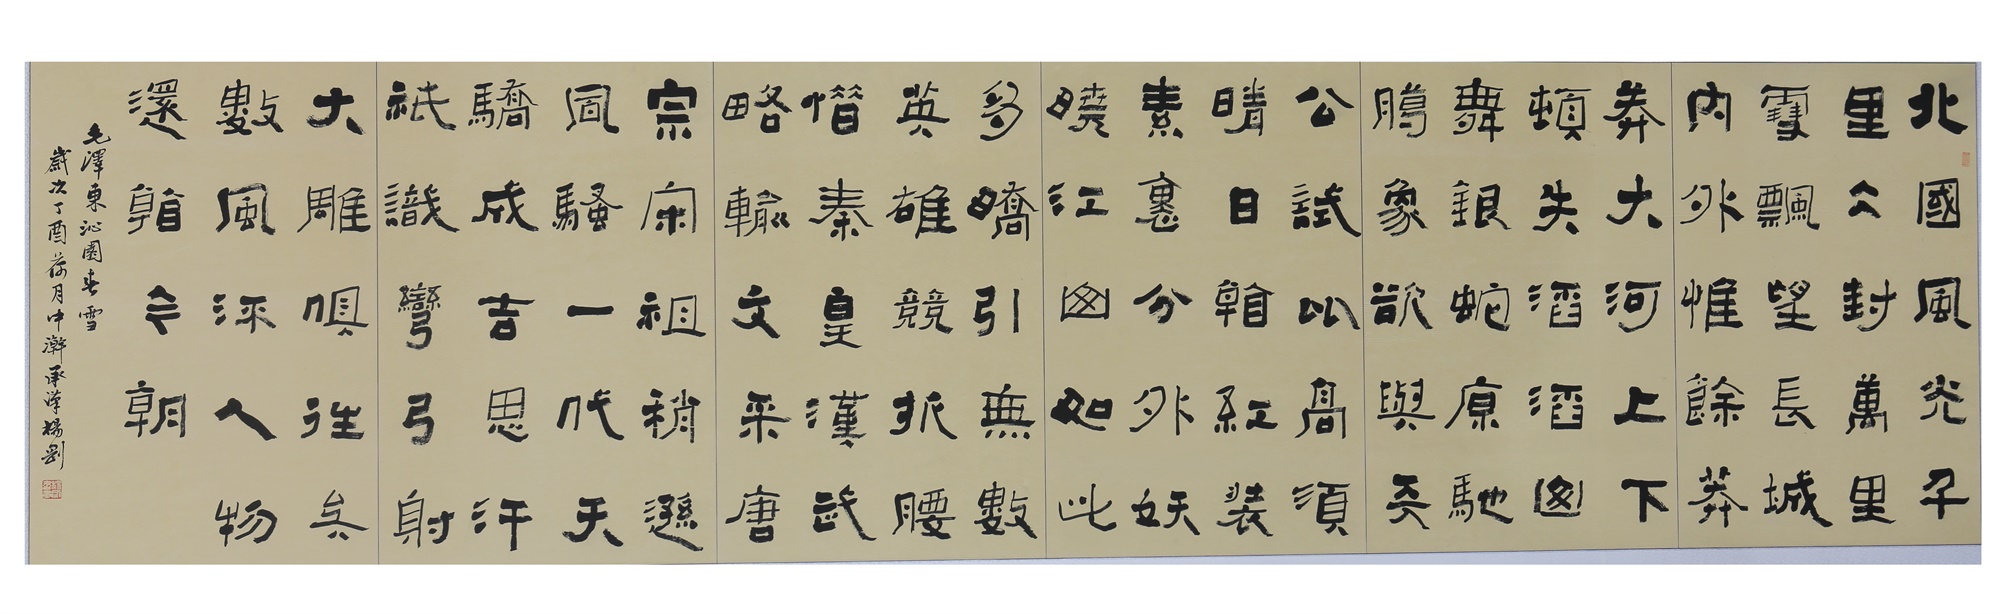 北國風光千
里仌封萬里
雪飄望長城
內外惟餘莽
莽大河上下
頓失滔滔山
舞銀蛇原馳
臘象欲與天
公試比高須
晴日看紅裝
素裹分外妖
嬈江山如此
多嬌引無數
英雄競折腰
惜秦皇漢武
略輸文采唐
宗宋祖稍遜
風騷一代天
驕成吉思汗
祇識彎弓射
大雕俱往矣
數風流人物
還看今朝
毛澤東沁園春雪
歲次丁酉荷月中澣承澤楊